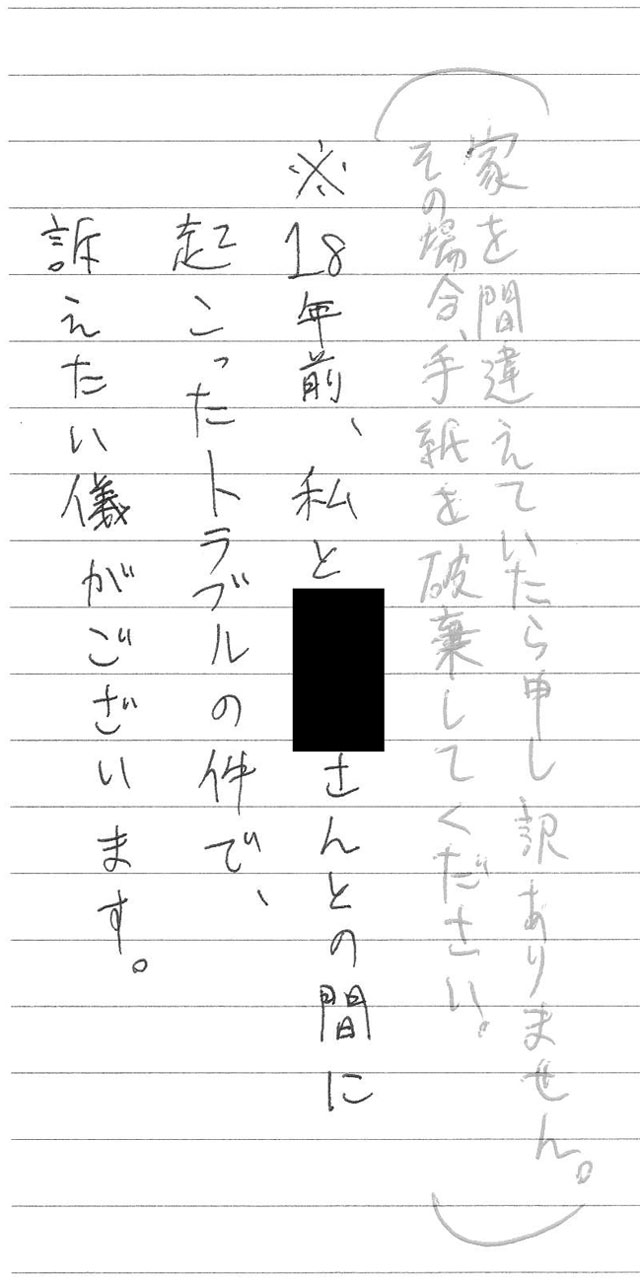 （家を間違えていたら申し訳ありません。
その場合、手紙を破棄してください。）
※18年前、私と
さんとの間に
起こったトラブルの件で、
訴えたい儀がございます。